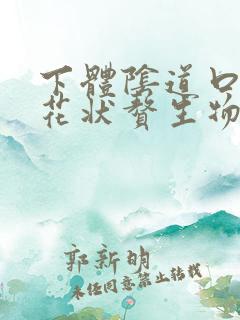 下體陰道口
花狀贅生物
郭新明
未经同意禁止转载